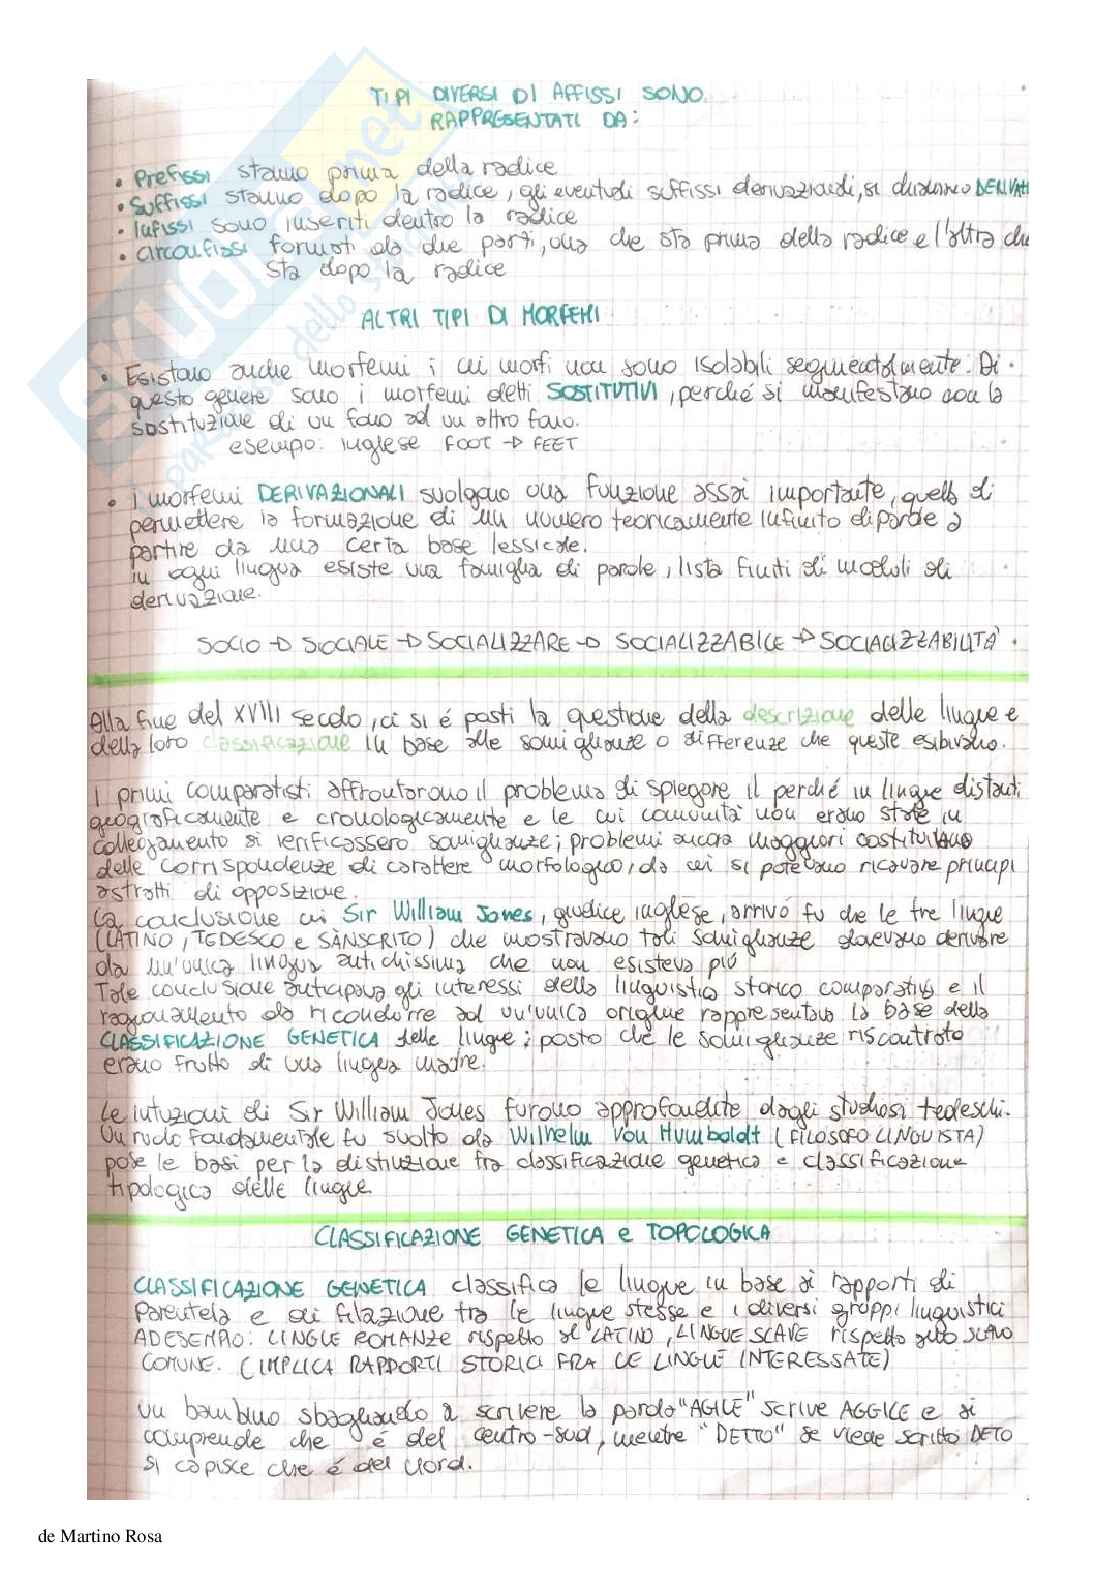 TIPI DIVERSI DI AFFISSI SONO
RAPPRESENTATI DA:
• Prefissi stanno prima della radice
• Suffissi stanno dopo la radice, gli eventuali suffissi derivazionali, si chiamano DERIVATI
• Infissi sono inseriti dentro la radice
• circonfissi formati da due parti, una che sta prima della radice e l'altra che
sta dopo la radice
ALTRI TIPI DI MORFEMI
• Esistono anche morfemi i cui morfi non sono isolabili segmentalmente. Di
questo genere sono i morfemi detti SOSTITUTIVI, perché si manifestano con la
sostituzione di un fono ad un altro fono.
esempio: inglese FOOT → FEET
• i morfemi DERIVAZIONALI svolgono una funzione assai importante, quella di
permettere la formazione di un numero teoricamente infinito di parole a
partire da una certa base lessicale.
in ogni lingua esiste una famiglia di parole, lista finiti di moduli di
derivazione.
SOCIO → SOCIALE → SOCIALIZZARE → SOCIALIZZABILE → SOCIALIZZABILITÀ.
Alla fine del XVIII secolo, ci si é posti la questione della descrizione delle lingue e
della loro classificazione in base alle somiglianze o differenze che queste esibivano.
I primi comparatisti affrontarono il problema di spiegare il perché in lingue distanti
geograficamente e cronologicamente e le cui comunità non erano state in
collegamento si verificassero somiglianze; problemi ancora maggiori costituivano
delle corrispondenze di carattere morfologico, da cui si potevano ricavare principi
astratti di opposizione.
La conclusione cui Sir William Jones, giudice inglese, arrivó fu che le tre lingue
(LATINO, TEDESCO e SANSCRITO) che mostravano tali somiglianze dovevano derivare
da un'unica lingua antichissima che non esisteva piú
Tale conclusione anticipava gli interessi della linguistica storico comparativa e il
ragionamento da ricondurre ad un'unica origine rappresentava la base della
CLASSIFICAZIONE GENETICA delle lingue; posto che le somiglianze riscontrate
erano frutto di una lingua madre.
Le intuzioni di Sir William Jones furono approfondite dagli studiosi tedeschi.
Un ruolo fondamentale fu svolto da Wilhelm Von Humboldt (FILOSOFO LINGUISTA)
pose le basi per la distinzione fra classificazione genetica e classificazione
tipologica delle lingue.
CLASSIFICAZIONE GENETICA e TOPOLOGICA
CLASSIFICAZIONE GENETICA classifica le lingue in base ai rapporti di
Parentela e di filazione tra le lingue stesse e i diversi gruppi linguistici
AD ESEMPIO: LINGUE ROMANZE rispetto al LATINO, LINGUE SLAVE rispetto allo SLAVO
COMUNE. (IMPLICA RAPPORTI STORICI FRA LE LINGUE INTERESSATE)
un bambino sbagliando a scrivere la parola "AGILE" scrive AGGILE e si
comprende che é del centro-sud, mentre "DETTO" se viene scritto DETO
si capisce che é del Nord.
de Martino Rosa